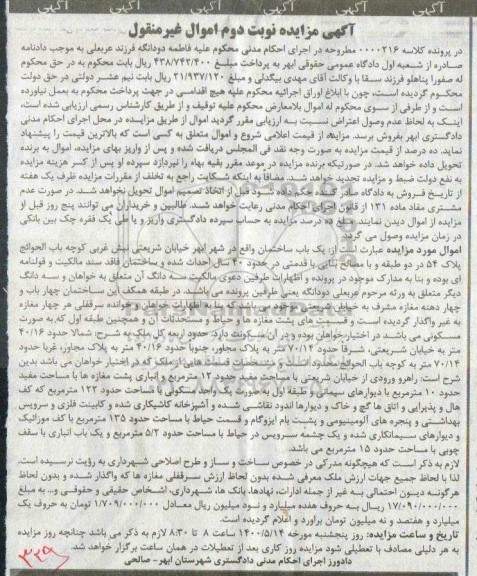 آگهی مزایده نوبت دوم اموال غیرمنقول
در پرونده کلاسه ۰۰۰۰۲۱۶ مطروحه در اجرای احکام مدنی محکوم علیه فاطمه دودانگه فرزند عربعلی به موجب دادنامه
صادره از شعبه اول دادگاه عمومی حقوقی ابهر به پرداخت مبلغ ۴۳۸/۷۴۲/۴۰۰ ریال بابت محکوم به در حق محکوم
له صفورا پناهلو فرزند سقا با وکالت آقای مهدی بیگدلی و مبلغ ۲۱/۹۳۷/۱۲۰ ریال بابت نیم عشر دولتی در حق دولت
محکوم گردیده است، چون با ابلاغ اوراق اجرائیه محکوم علیه هیچ اقدامی در جهت پرداخت محکوم به بعمل نیاورده
است و از طرفی از سوی محکوم له اموال بلامعارض محکوم علیه توقیف و از طریق کارشناس رسمی ارزیابی شده است،
اینک به لحاظ عدم وصول اعتراض نسبت به ارزیابی مقرر گردید اموال از طریق مزایده در محل اجرای احکام مدنی
دادگستری ابهر بفروش برسد. مزایده، از قیمت اعلامی شروع و اموال متعلق به کسی است که بالاترین قیمت را پیشنهاد
نماید. ده درصد از قیمت مزایده به صورت وجه نقد فی المجلس دریافت شده و پس از واریز بهای مزایده، اموال به برنده
تحویل داده خواهد شد. در صورتیکه برنده مزایده در موعد مقرر بقیه بهاء را نپردازد سپرده او پس از کسر هزینه مزایده
به نفع دولت ضبط و مزایده تجدید خواهد شد. مضافا به اینکه شکایت راجع به تخلف از مقررات مزایده ظرف یک هفته
از تاریخ فروش به دادگاه صادر کننده حکم داده شود قبل از اتخاذ تصمیم اموال تحویل نخواهد شد. در صورت عدم
مشتری مفاد ماده ۱۳۱ از قانون اجرای احکام مدنی رعایت خواهد شد. طالبین و خریداران می توانند پنج روز قبل از
مزایده از اموال دیدن نمایند. مبلغ ده درصد مزایده به حساب سپرده دادگستری واریز و یا طی یک فقره چک بین بانکی
در زمان مزایده وصول می گردد.
اموال مورد مزایده عبارت است از: یک باب ساختمان واقع در شهر ابهر خیابان شریعتی نبش غربی کوچه باب الحوائج
پلاک ۵۴ در دو طبقه و با مصالح بنایی با قدمتی در حدود ۴۰ سال احداث شده و ساختمان فاقد سند مالکیت و قولنامه
ای بوده و بنا به مدارک موجود در پرونده و اظهارات طرفین دعوی مالکیت سه دانگ آن متعلق به خواهان و سه دانگ
دیگر متعلق به ورثه مرحوم عربعلی دودانگه یعنی طرفین پرونده می باشند. در طبقه همکف این ساختمان چهار باب و
چهار دهنه مغازه مشرف به خیابان شریعتی می باشد که بنا به اظهارات خواهان و خوانده سرقفلی هر چهار مغازه
به غیر واگذار گردیده است و قسمت های پشت مغازه ها و حیاط و مستحدثات آن و همچنین طبقه اول که به صورت
مسکونی می باشد در اختیار خواهان بوده و در آن سکونت دارد. حدود اربعه کل ملک به شرح: شمالا حدود ۴۰/۱۶
متر به خیابان شریعتی، شرقا حدود ۷۰/۱۴ متر به پلاک مجاور، جنوبا حدود ۴۰/۱۶ متر به پلاک مجاور، غربا حدود
۷۰/۱۴ متر به کوچه باب الحوائج محدود است و مشخصات قسمت هایی از ملک که در اختیار خواهان می باشد بدین
شرح است: راهرو ورودی از خیابان شریعتی با مساحت حدود ۱۲ مترمربع و انباری پشت مغازه ها با مساحت مفید
حدود ۱۰ مترمربع با دیوارهای سیمانی و طبقه اول به صورت یک واحد مسکونی با مساحت حدود ۱۲۲ مترمربع که کف
هال و پذیرایی و اتاق ها گچ و خاک و دیوارها اندود نقاشی شده و آشپزخانه کاشیکاری شده و کابینت فلزی و سرویس
بهداشتی و پنجره های آلومینیومی و پشت بام ایزوگام و قسمت حیاط با مساحت حدود ۱۳۵ مترمربع با کف موزائیک
و دیوارهای سیمانکاری شده و یک چشمه سرویس در حیاط با مساحت حدود ۵/۲ مترمربع و یک باب انباری با سقف
چوبی با مساحت حدود ۱۵ مترمربع می باشد.
لازم به ذکر است که هیچگونه مدرکی در خصوص ساخت و ساز و طرح اصلاحی شهرداری به رؤیت نرسیده است.
لذا با لحاظ جمیع جهات ارزش ملک معرفی شده بدون لحاظ ارزش سرقفلی مغازه ها که واگذار شده و بدون لحاظ
هرگونه دیون احتمالی به غیر از جمله ادارات، نهادها، بانک ها، شهرداری، اشخاص حقیقی و حقوقی و... به مبلغ
۱۷/۰۹۰/۰۰۰/۰۰۰ ریال به حروف هفده میلیارد و نود میلیون ریال معادل ۱/۷۰۹/۰۰۰/۰۰۰ تومان به حروف یک
میلیارد و هفتصد و نه میلیون تومان برآورد و اعلام گردیده است.
تاریخ و ساعت مزایده: روز پنجشنبه مورخه ۱۴۰۰/۵/۱۴ ساعت ۸ تا ۸:۳۰ لازم به ذکر می باشد چنانچه روز مزایده
به هر دلیلی مصادف با تعطیلی شود مزایده روز کاری بعد از تعطیلات در همان ساعت برگزار خواهد شد.
دادورز اجرای احکام مدنی دادگستری شهرستان ابهر- صالحی